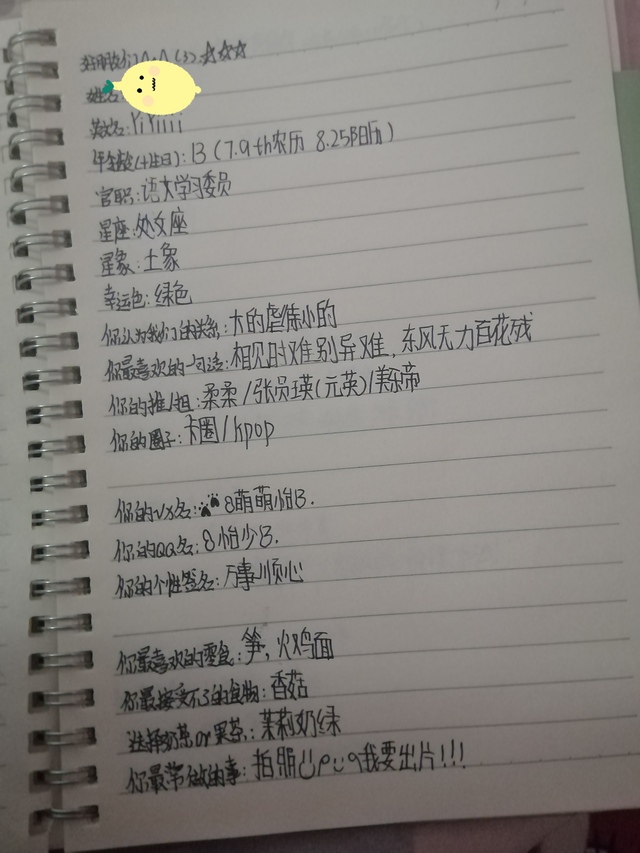 (3) ☆☆☆
姓名:
英文名: YiYiiii
年龄(+生日): 13 (7.9th农历 8.25阳历)
官职: 语文学习委员
星座: 处女座
星象: 土象
幸运色: 绿色
你认为我们的关系: 大的虐待小的
你最喜欢的一句话: 相见时难别异难, 东风无力百花残
你的推/担: 柔柔 / 张员瑛(元英) / 美帝
你的圈子: 卡圈 / kpop
你的vx名: 8萌萌怡B.
你的QQ名: 8怡少B.
你的个性签名: 万事顺心
你最喜欢的零食: 笋, 火鸡面
你最接受不了的食物: 香菇
选择奶茶or果茶: 茉莉奶绿
你最常做的事: 拍照 我要出片!!!